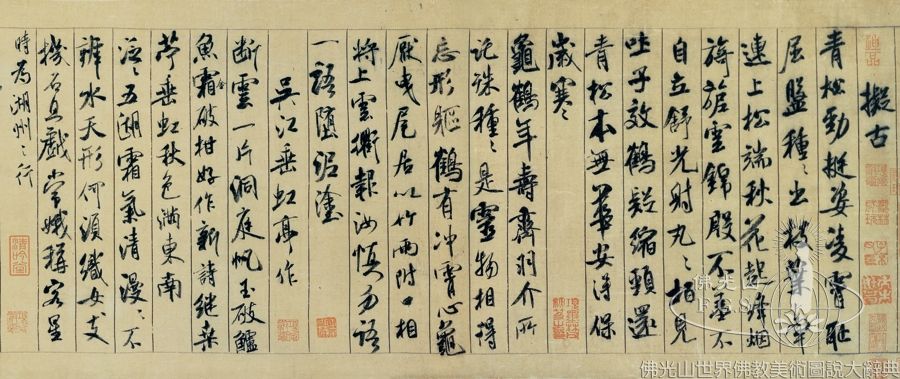 擬古
青松勁挺姿凌霄耻
屈盤種〻出枝葉牽
連上松端秋花起絳煙
旖旎雲錦殷不羞不
自立舒光射丸〻柏見
吐子效鶴疑縮頸還
青松本無華安得保
歲寒〻
龜鶴年壽齊羽介所
託殊種〻是靈物相得
忘形軀鶴有冲霄心龜
厭曳尾居以竹兩附口相
將上雲衢報汝慎勿語
一語墮泥塗
吳江垂虹亭作
斷雲一片洞庭帆玉破鱸
魚霜金破柑好作新詩繼桑
苧垂虹秋色滿東南
泛〻五湖霜氣清漫〻不
辨水天形何須織女支
機石且戲常娥稱客星
時為湖州之行
佛光山世界佛教美術圖說大辭典